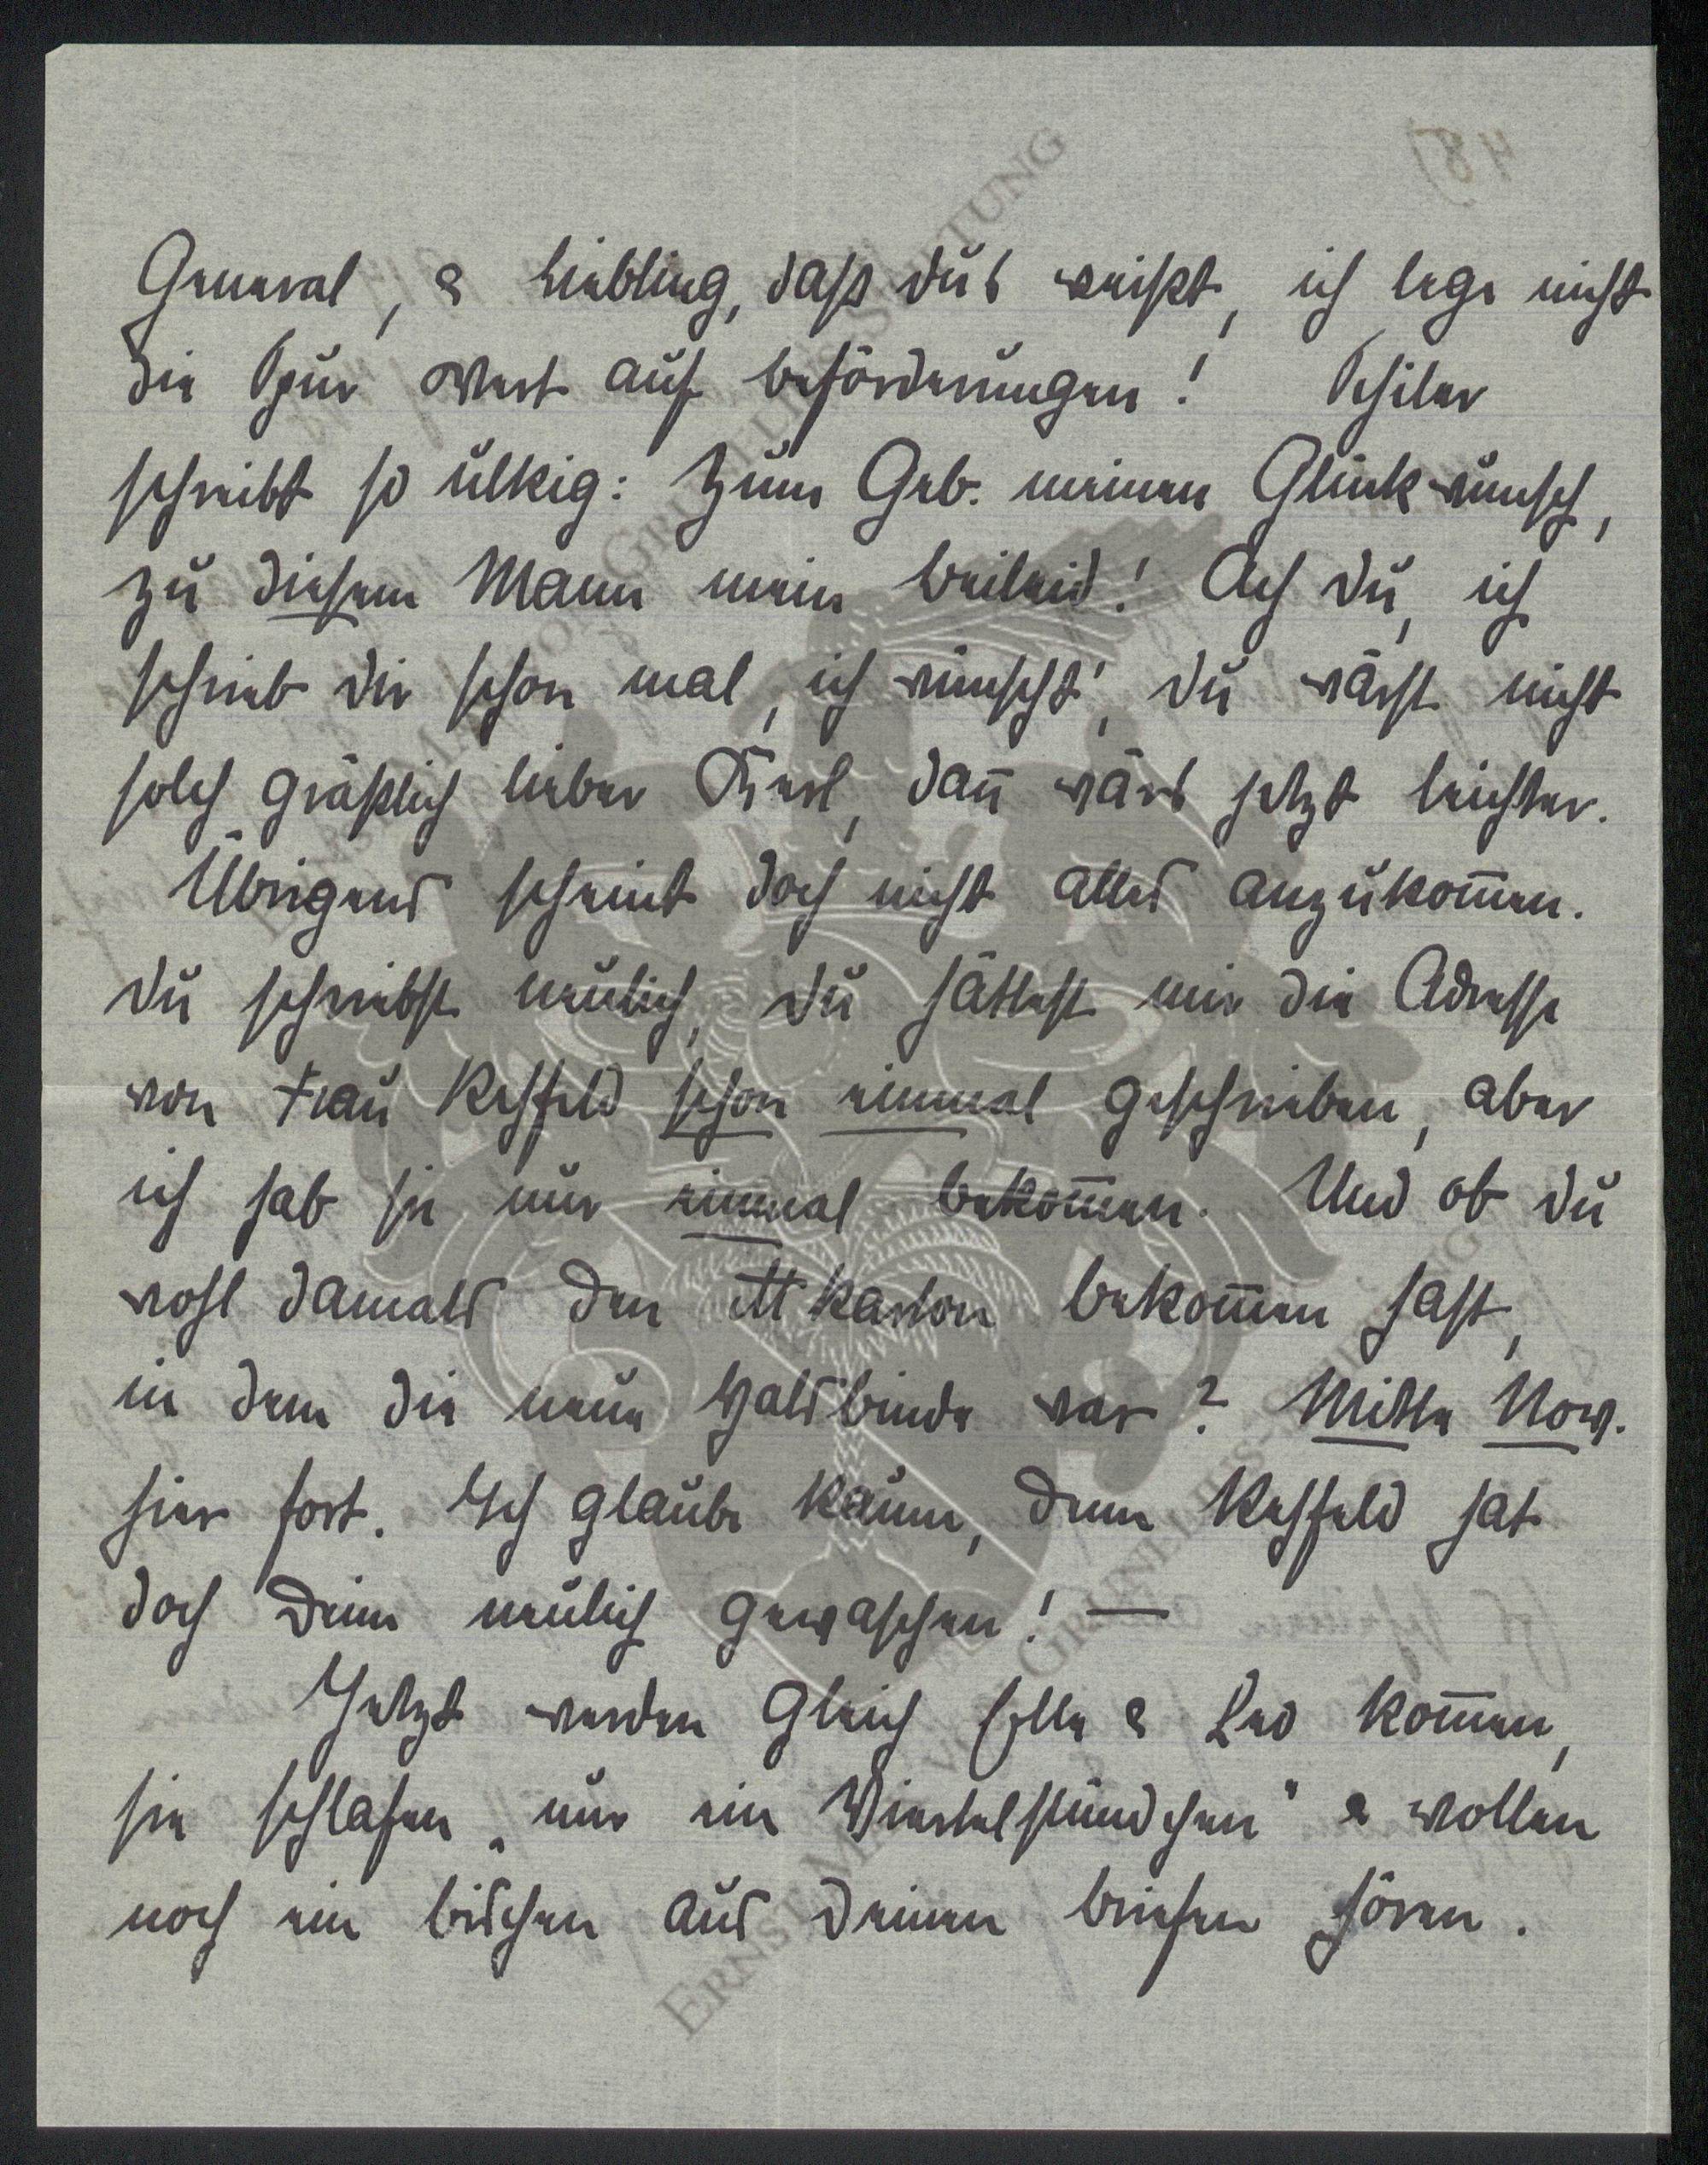 General, & Liebling, daß du's weißt, ich lege nicht
die Spur Wert auf Beförderungen! Schiler
schreibt so ulkig: Zum Geb. meinen Glückwunsch,
zu diesem Mann mein Beileid! Ach du, ich
schrieb dir schon mal, ich wünscht', du wärst nicht
solch gräßlich lieber Kerl, dañ wärs jetzt leichter.
Übrigens scheint doch nicht alles anzukom̄en.
Du schriebst neulich, du hättest mir die Adresse
von Frau Rehfeld schon einmal geschrieben, aber
ich hab sie nur einmal bekom̄en. Und ob du
wohl damals den karton bekom̄en hast,
in dem die neue Halsbinde war? Mitte Nov.
hier fort. Ich glaube kaum, denn Rehfeld hat
doch Deine neulich gewaschen! —
Jetzt werden gleich Elle & Leo kom̄en,
sie schlafen „nur ein Viertelstündchen" & wollen
noch ein bischen aus Deinen Briefen hören.
48)
ERNST-MAGNO GRUNELIUS-STIFTUNG
ERNST-MAGNO GRUNELIUS-STIFTUNG